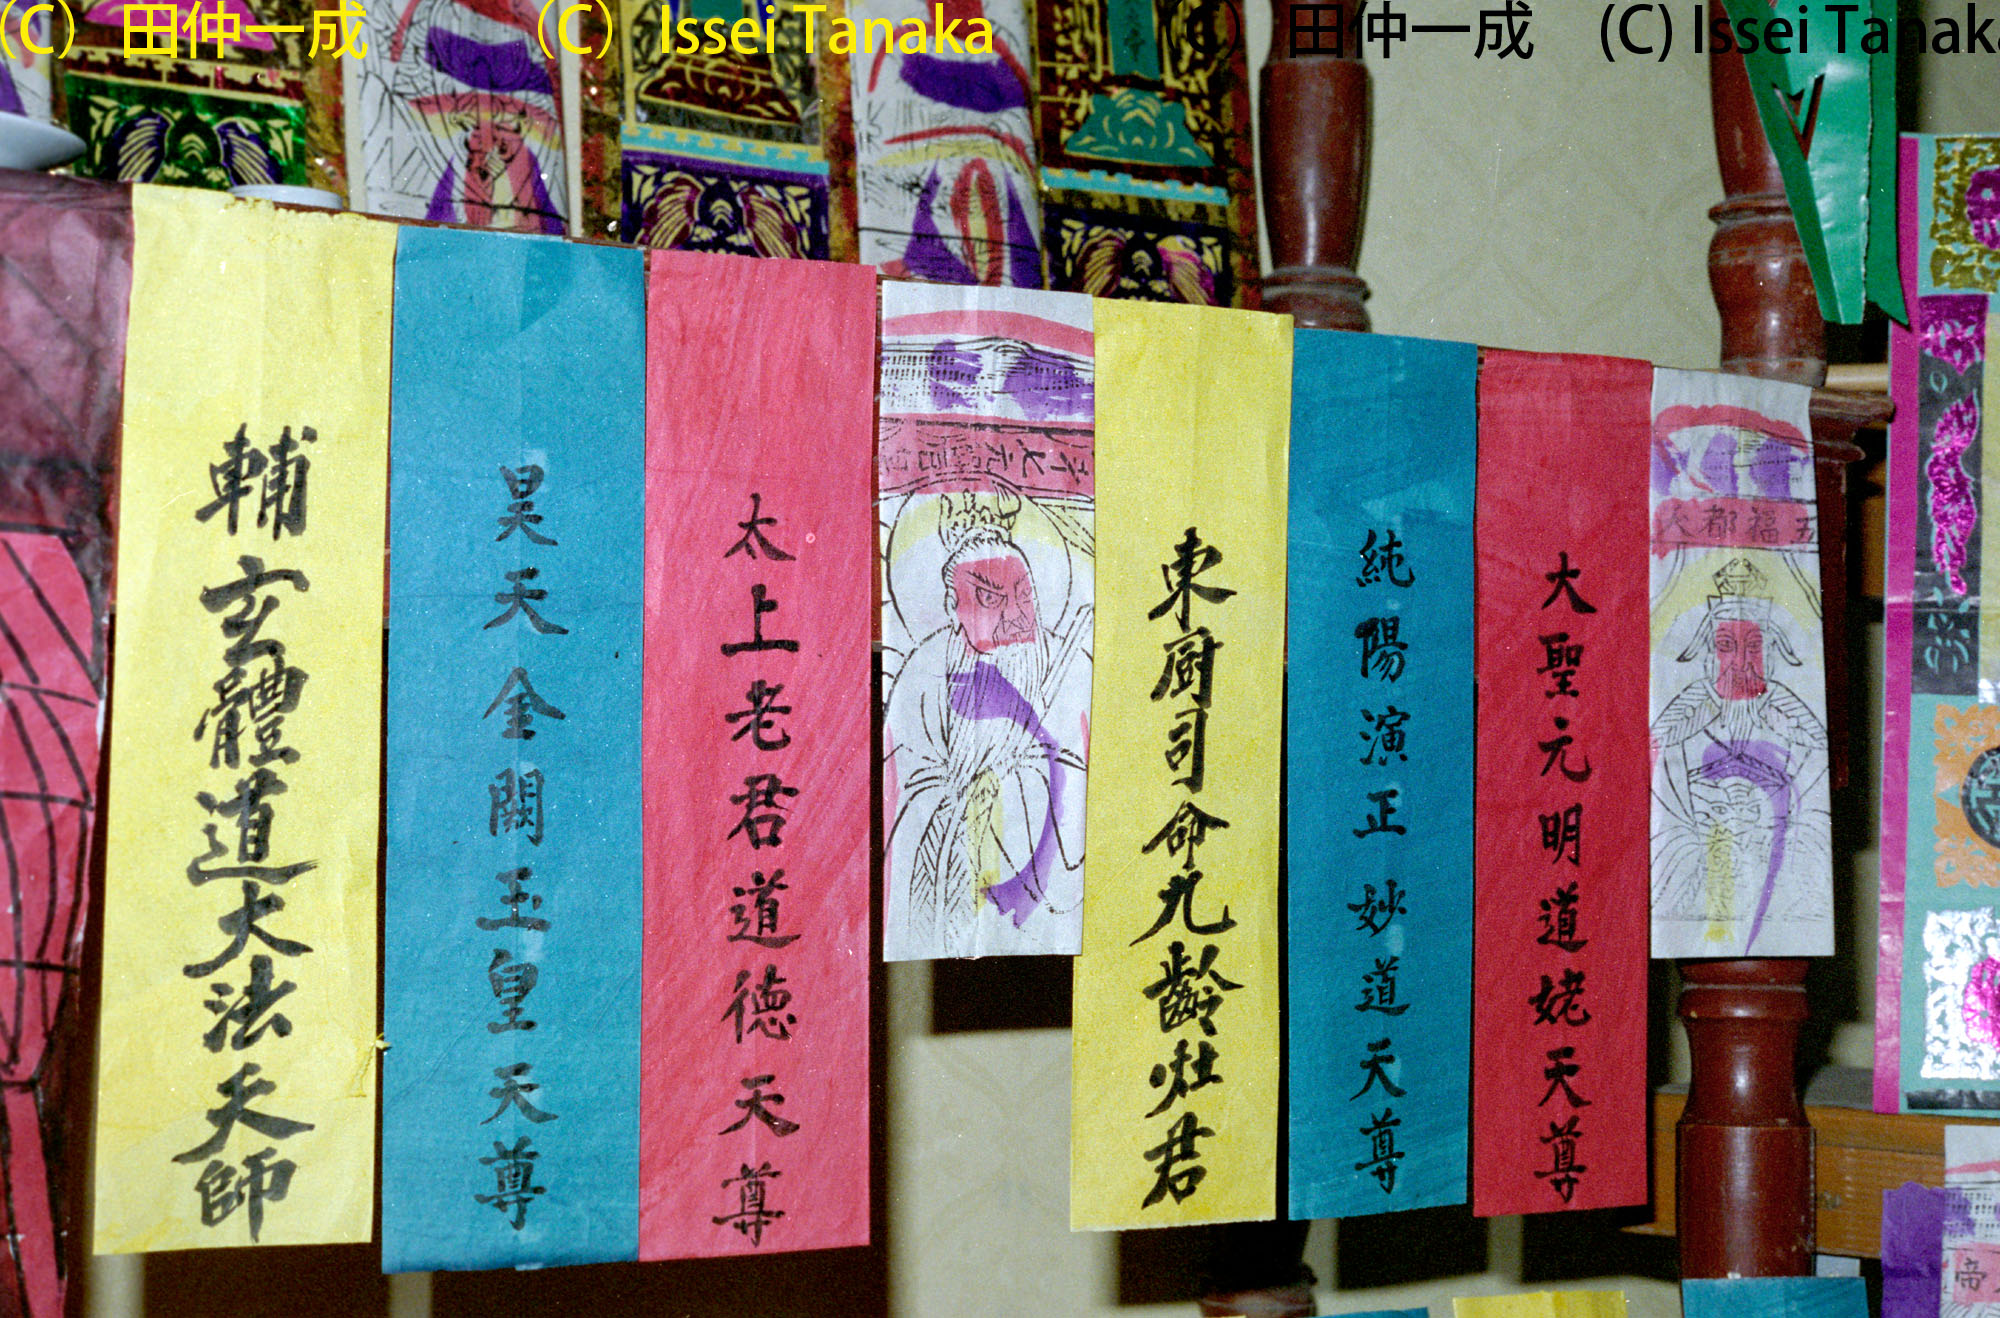 (C) 田仲一成
(C) Issei Tanaka
(C) 田仲一成
(C) Issei Tanaka
輔玄體道大法天師
昊天金闕玉皇天尊
太上老君道德天尊
東厨司命九齡灶君
純陽演正妙道天尊
大聖元明道姥天尊
大都福五
帝